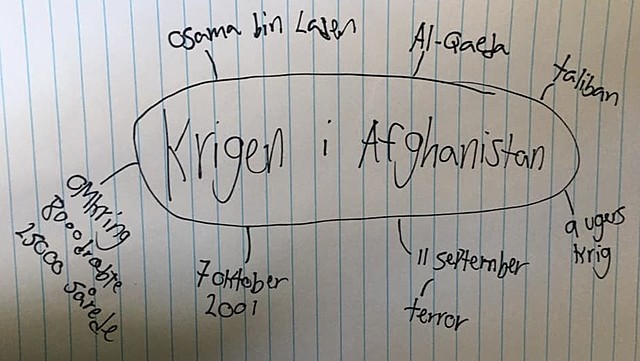 Osama bin Laden
Al-Qaeda
taliban
Krigen i Afghanistan
omkring
8000 dræbte
25000 sårede
7 oktober
2001
11 september
terror
9 ugers
krig